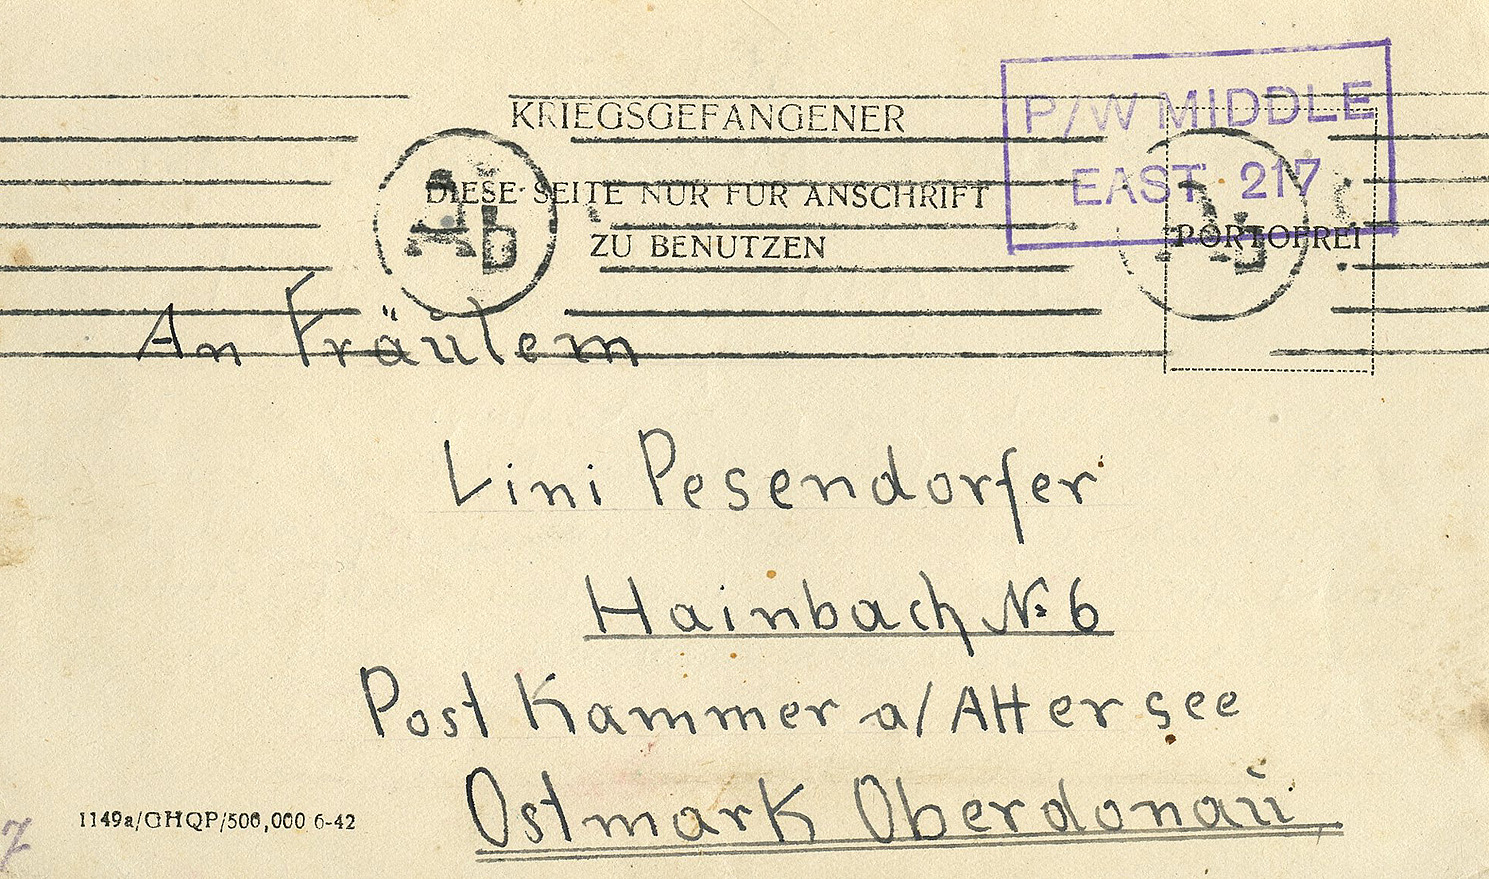 KRIEGSGEFANGENER
DIESE SEITE NUR FUR ANSCHRIFT
ZU BENUTZEN
P/W MIDDLE
EAST 217
PORTOFREI
Ab
Ab
An Fräulein
Lini Pesendorfer
Hainbach № 6
Post Kammer a/Attersee
Ostmark Oberdonau
1149a/GHQP/500,000 6-42
7